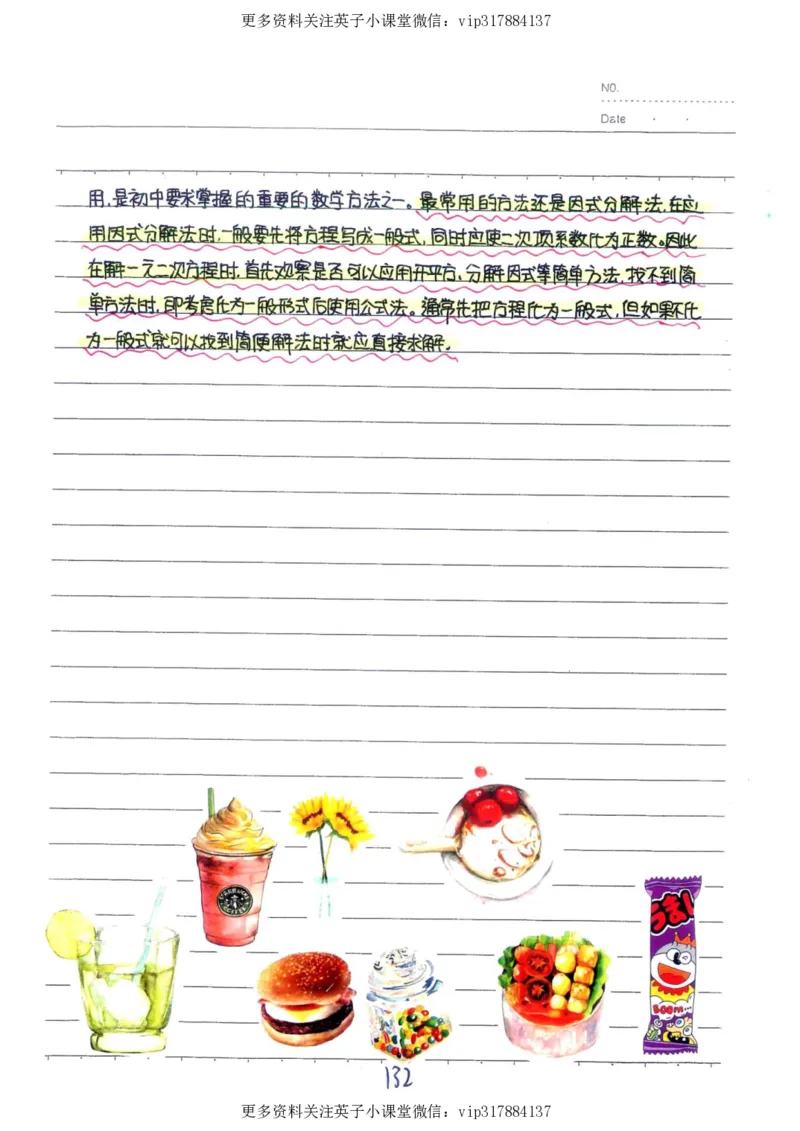 更多资料关注英子小课堂微信：vip317884137
NO.
Date
用,是初中要求掌握的重要的数学方法之一。最常用的方法还是因式分解法,在应
用因式分解法时,一般要先将方程写成一般式,同时应使二次项系数化为正数。因此
在解一元二次方程时,首先观察是否可以应用开平方、分解因式等简单方法,找不到简
单方法时,即考虑化为一般形式后使用公式法。通常先把方程化为一般式,但如果不化
为一般式就可以找到简便解法时就应直接求解.
うまい
BOOM
132
更多资料关注英子小课堂微信：vip317884137